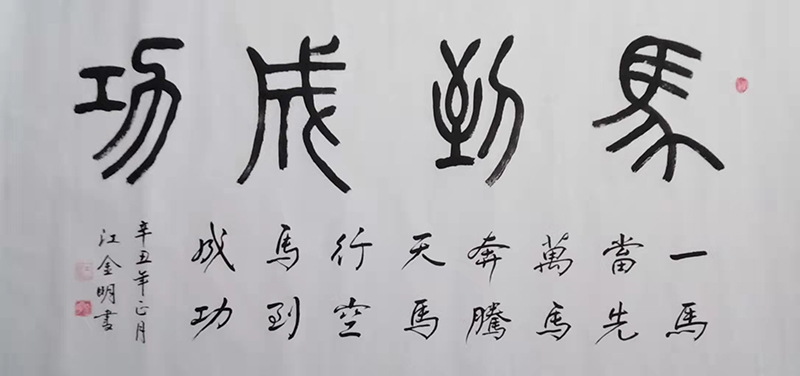 馬到成功
一馬
當先
萬馬
奔騰
天馬
行空
馬到
成功
辛丑年正月
江金明書